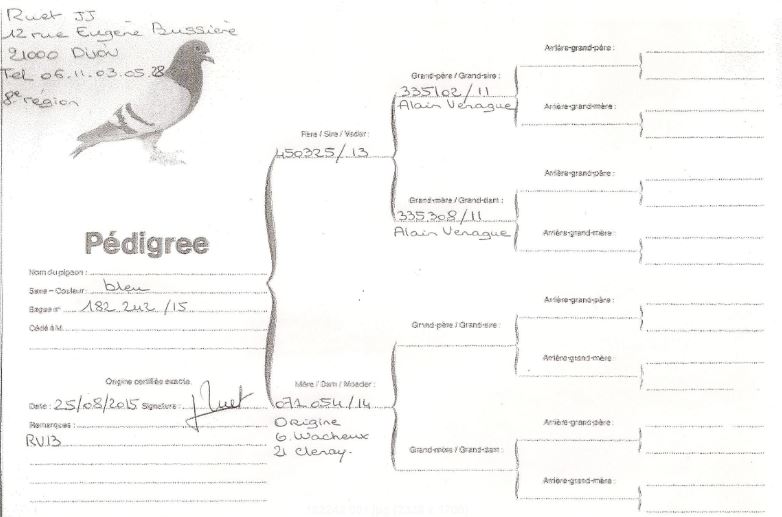 Ruet JJ
12 rue Eugène Bussière
21000 Dijon
Tel 06.11.03.05.28
8e région
Pédigree
Nom du pigeon :
Sexe - Couleur : bleu
Bague n° 182.242 /15
Cédé à M.
Origine certifiée exacte.
Date : 25/08/2015 Signature : Ruet
Remarques :
RV13
Père / Sire / Vader :
450325/13
Mère / Dam / Moeder :
071.054/14
Origine
G. Wacheux
21 Cleray.
Grand-père / Grand-sire :
335102/11
Alain Venague
Grand-mère / Grand-dam :
335.308/11
Alain Venague
Grand-père / Grand-sire :
Grand-mère / Grand-dam :
Arrière-grand-père :
Arrière-grand-mère :
Arrière-grand-père :
Arrière-grand-mère :
Arrière-grand-père :
Arrière-grand-mère :
Arrière-grand-père :
Arrière-grand-mère :